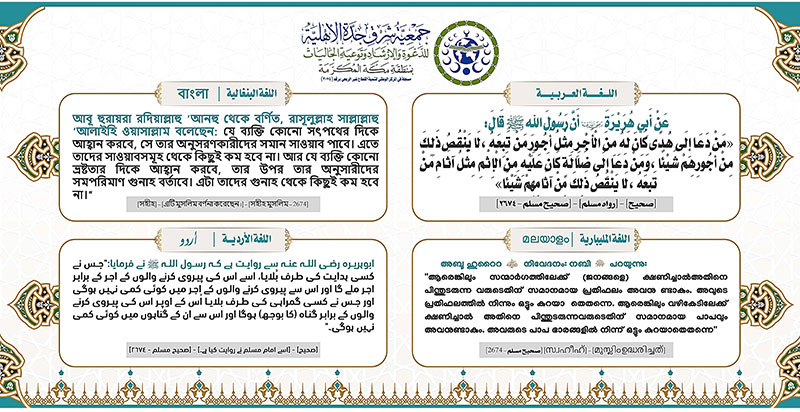 جمعية شرق جدة الأهلية
للدعوة والإرشاد وتوعية الجاليات
بمنطقة مكة المكرمة
اللغة العربية
عَنْ أَبِي هُرَيْرَةَ أَنَّ رَسُولَ اللَّهِ ﷺ قَالَ:
«مَنْ دَعَا إِلَى هُدًى كَانَ لَهُ مِنَ الأَجْرِ مِثْلُ أُجُورِ مَنْ تَبِعَهُ ، لَا يَنْقُصُ ذَلِكَ
مِنْ أُجُورِهِمْ شَيْئًا ، وَمَنْ دَعَا إِلَى ضَلَالَةٍ كَانَ عَلَيْهِ مِنَ الإِثْمِ مِثْلُ آثَامِ مَنْ
تَبِعَهُ ، لَا يَنْقُصُ ذَلِكَ مِنْ آثَامِهِمْ شَيْئًا»
[صحيح] - [رواه مسلم] - [صحيح مسلم - ٢٦٧٤]
বাংলা | اللغة البنغالية
আবূ হুরায়রা রদিয়াল্লাহু 'আনহু থেকে বর্ণিত, রাসূলুল্লাহ সাল্লাল্লাহু
'আলাইহি ওয়াসাল্লাম বলেছেন: যে ব্যক্তি কোনো সৎপথের দিকে
আহ্বান করবে, সে তার অনুসরণকারীদের সমান সাওয়াব পাবে। এতে
তাদের সাওয়াবসমূহ থেকে কিছুই কম হবে না। আর যে ব্যক্তি কোনো
ভ্রষ্টতার দিকে আহ্বান করবে, তার উপর তার অনুসারীদের
সমপরিমাণ গুনাহ বর্তাবে। এটা তাদের গুনাহ থেকে কিছুই কম হবে
না।"
[সহীহ] - [এটি মুসলিম বর্ণনা করেছেন।] - [সহীহ মুসলিম - 2674]
മലയാളം | اللغة المليبارية
അബൂ ഹുറൈറ നിവേദനം: നബി ﷺ പറയുന്നു:
"ആരെങ്കിലും സന്മാർഗത്തിലേക്ക് (ജനങ്ങളെ) ക്ഷണിച്ചാൽഅതിനെ
പിന്തുടരുന്ന വരുടെതിന് സമാനമായ പ്രതിഫലം അവന്ന ണ്ടാകും. അവുടെ
പ്രതിഫലത്തിൽ നിന്നും ഒട്ടും കുറയാ തെതന്നെ. ആരെങ്കിലും വഴികേടിലേക്ക്
ക്ഷണിച്ചാൽ അതിനെ പിന്തുടരുന്നവരുടെതിന് സമാനമായ പാപവും
അവനുണ്ടാകും. അവരുടെ പാപ ഭാരങ്ങളിൽ നിന്ന് ഒട്ടും കുറയാതെതന്നെ"
[സ്വഹീഹ്] - [മുസ്ലിം ഉദ്ധരിച്ചത്] [2674 - صحيح مسلم]
اللغة الأردية | اُردُو
ابوہریرہ رضی اللہ عنہ سے روایت ہے کہ رسول اللہ ﷺ نے فرمایا:"جس نے
کسی ہدایت کی طرف بُلایا، اسے اس کی پیروی کرنے والوں کے اجر کے برابر
اجر ملے گا اور اس سے پیروی کرنے والوں کے اجر میں کوئی کمی نہیں ہوگی
اور جس نے کسی گمراہی کی طرف بلایا اس کے اوپر اس کی پیروی کرنے
والوں کے برابر گناہ (کا بوجھ) ہوگا اور اس سے ان کے گناہوں میں کوئی کمی
نہیں ہوگی۔"
[صحیح] - [اسے امام مسلم نے روایت کیا ہے۔] - [صحیح مسلم - ٢٦٧٤]